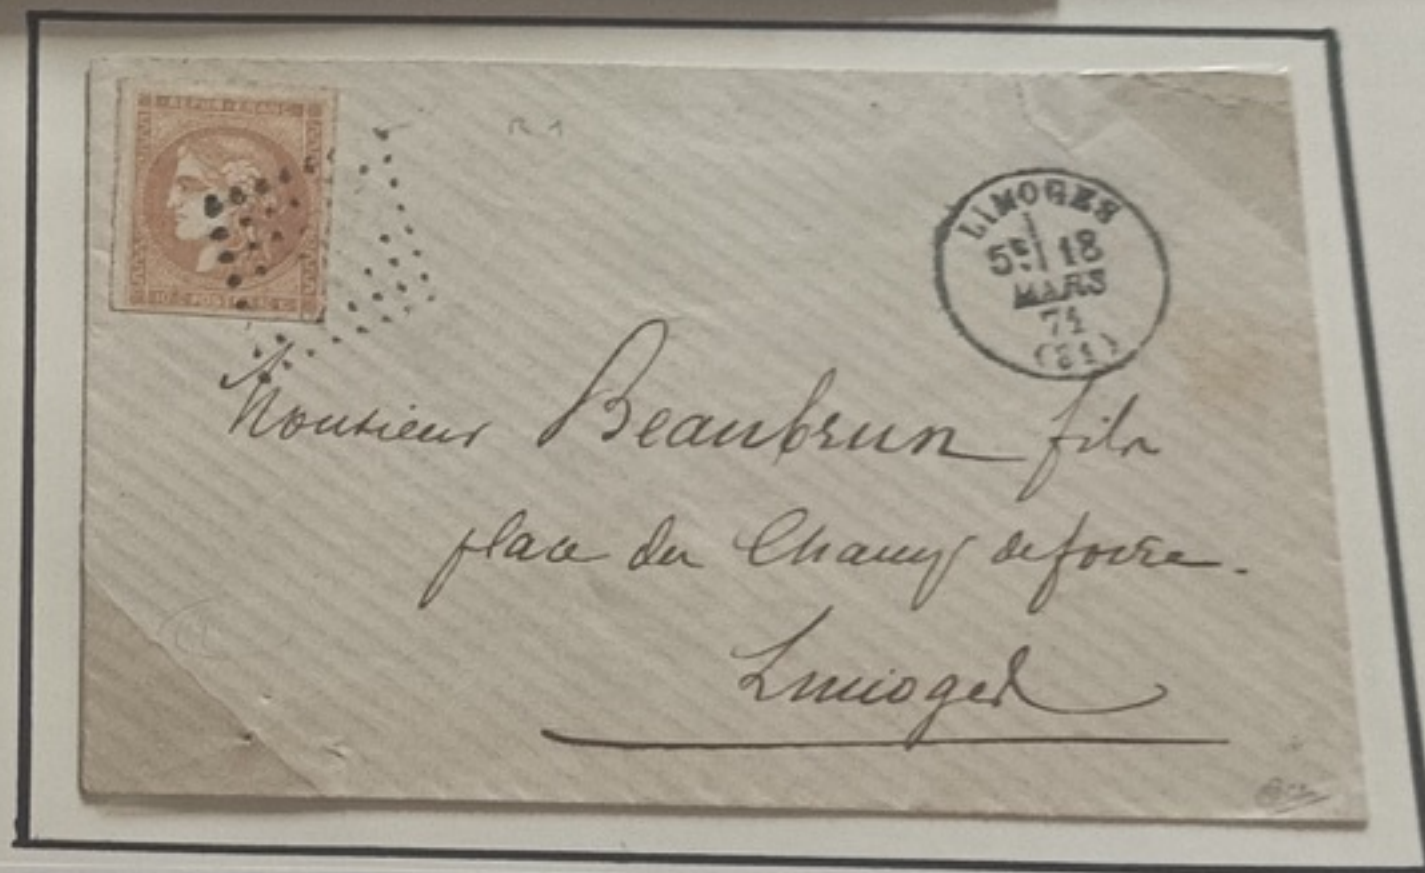 REPUB FRANC
10 C POSTES 10 C
R 1
LIMOGES
5E 18
MARS
71
(81)
Monsieur Beaubrun fils
place du Champ de foire.
Limoges